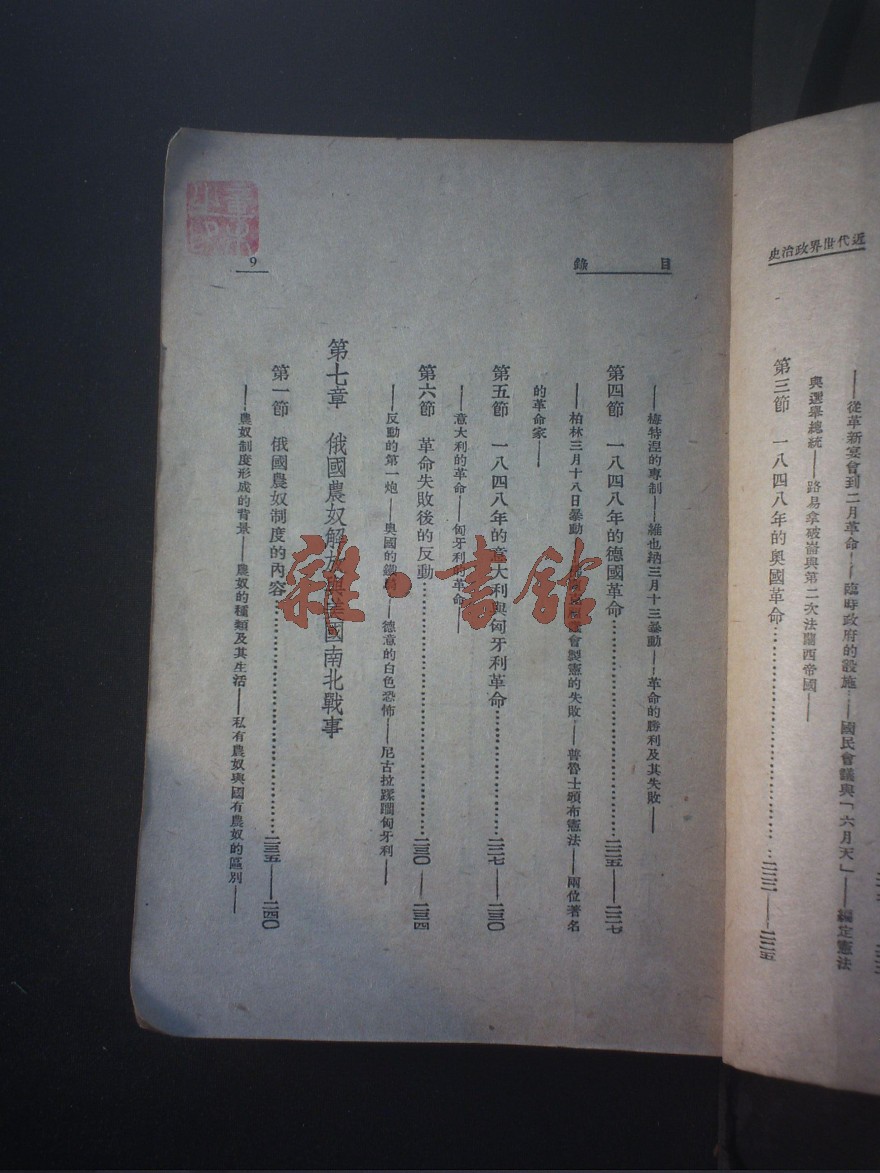 近代世界政治史
——從革新宴會到二月革命——臨時政府的設施——國民會議與「六月天」——編定憲法
與選舉總統——路易拿破崙與第二次法蘭西帝國——
第三節 一八四八年的奧國革命……二二二——二二五
目錄
——梅特涅的專制——維也納三月十三暴動——革命的勝利及其失敗——
第四節 一八四八年的德國革命……二二五——二二七
——柏林三月十八日暴動 會製憲的失敗——普魯士頒布憲法——兩位著名
的革命家——
第五節 一八四八年的意大利與匈牙利革命……二二七——二三〇
——意大利的革命——匈牙利的革命——
第六節 革命失敗後的反動……二三〇——二三四
——反動的第一炮——奧國的 ——德意的白色恐怖——尼古拉蹂躪匈牙利——
第七章 俄國農奴解放與美國南北戰事
第一節 俄國農奴制度的內容……二三五——二四〇
——農奴制度形成的背景——農奴的種類及其生活——私有農奴與國有農奴的區別——
9
雜·書館